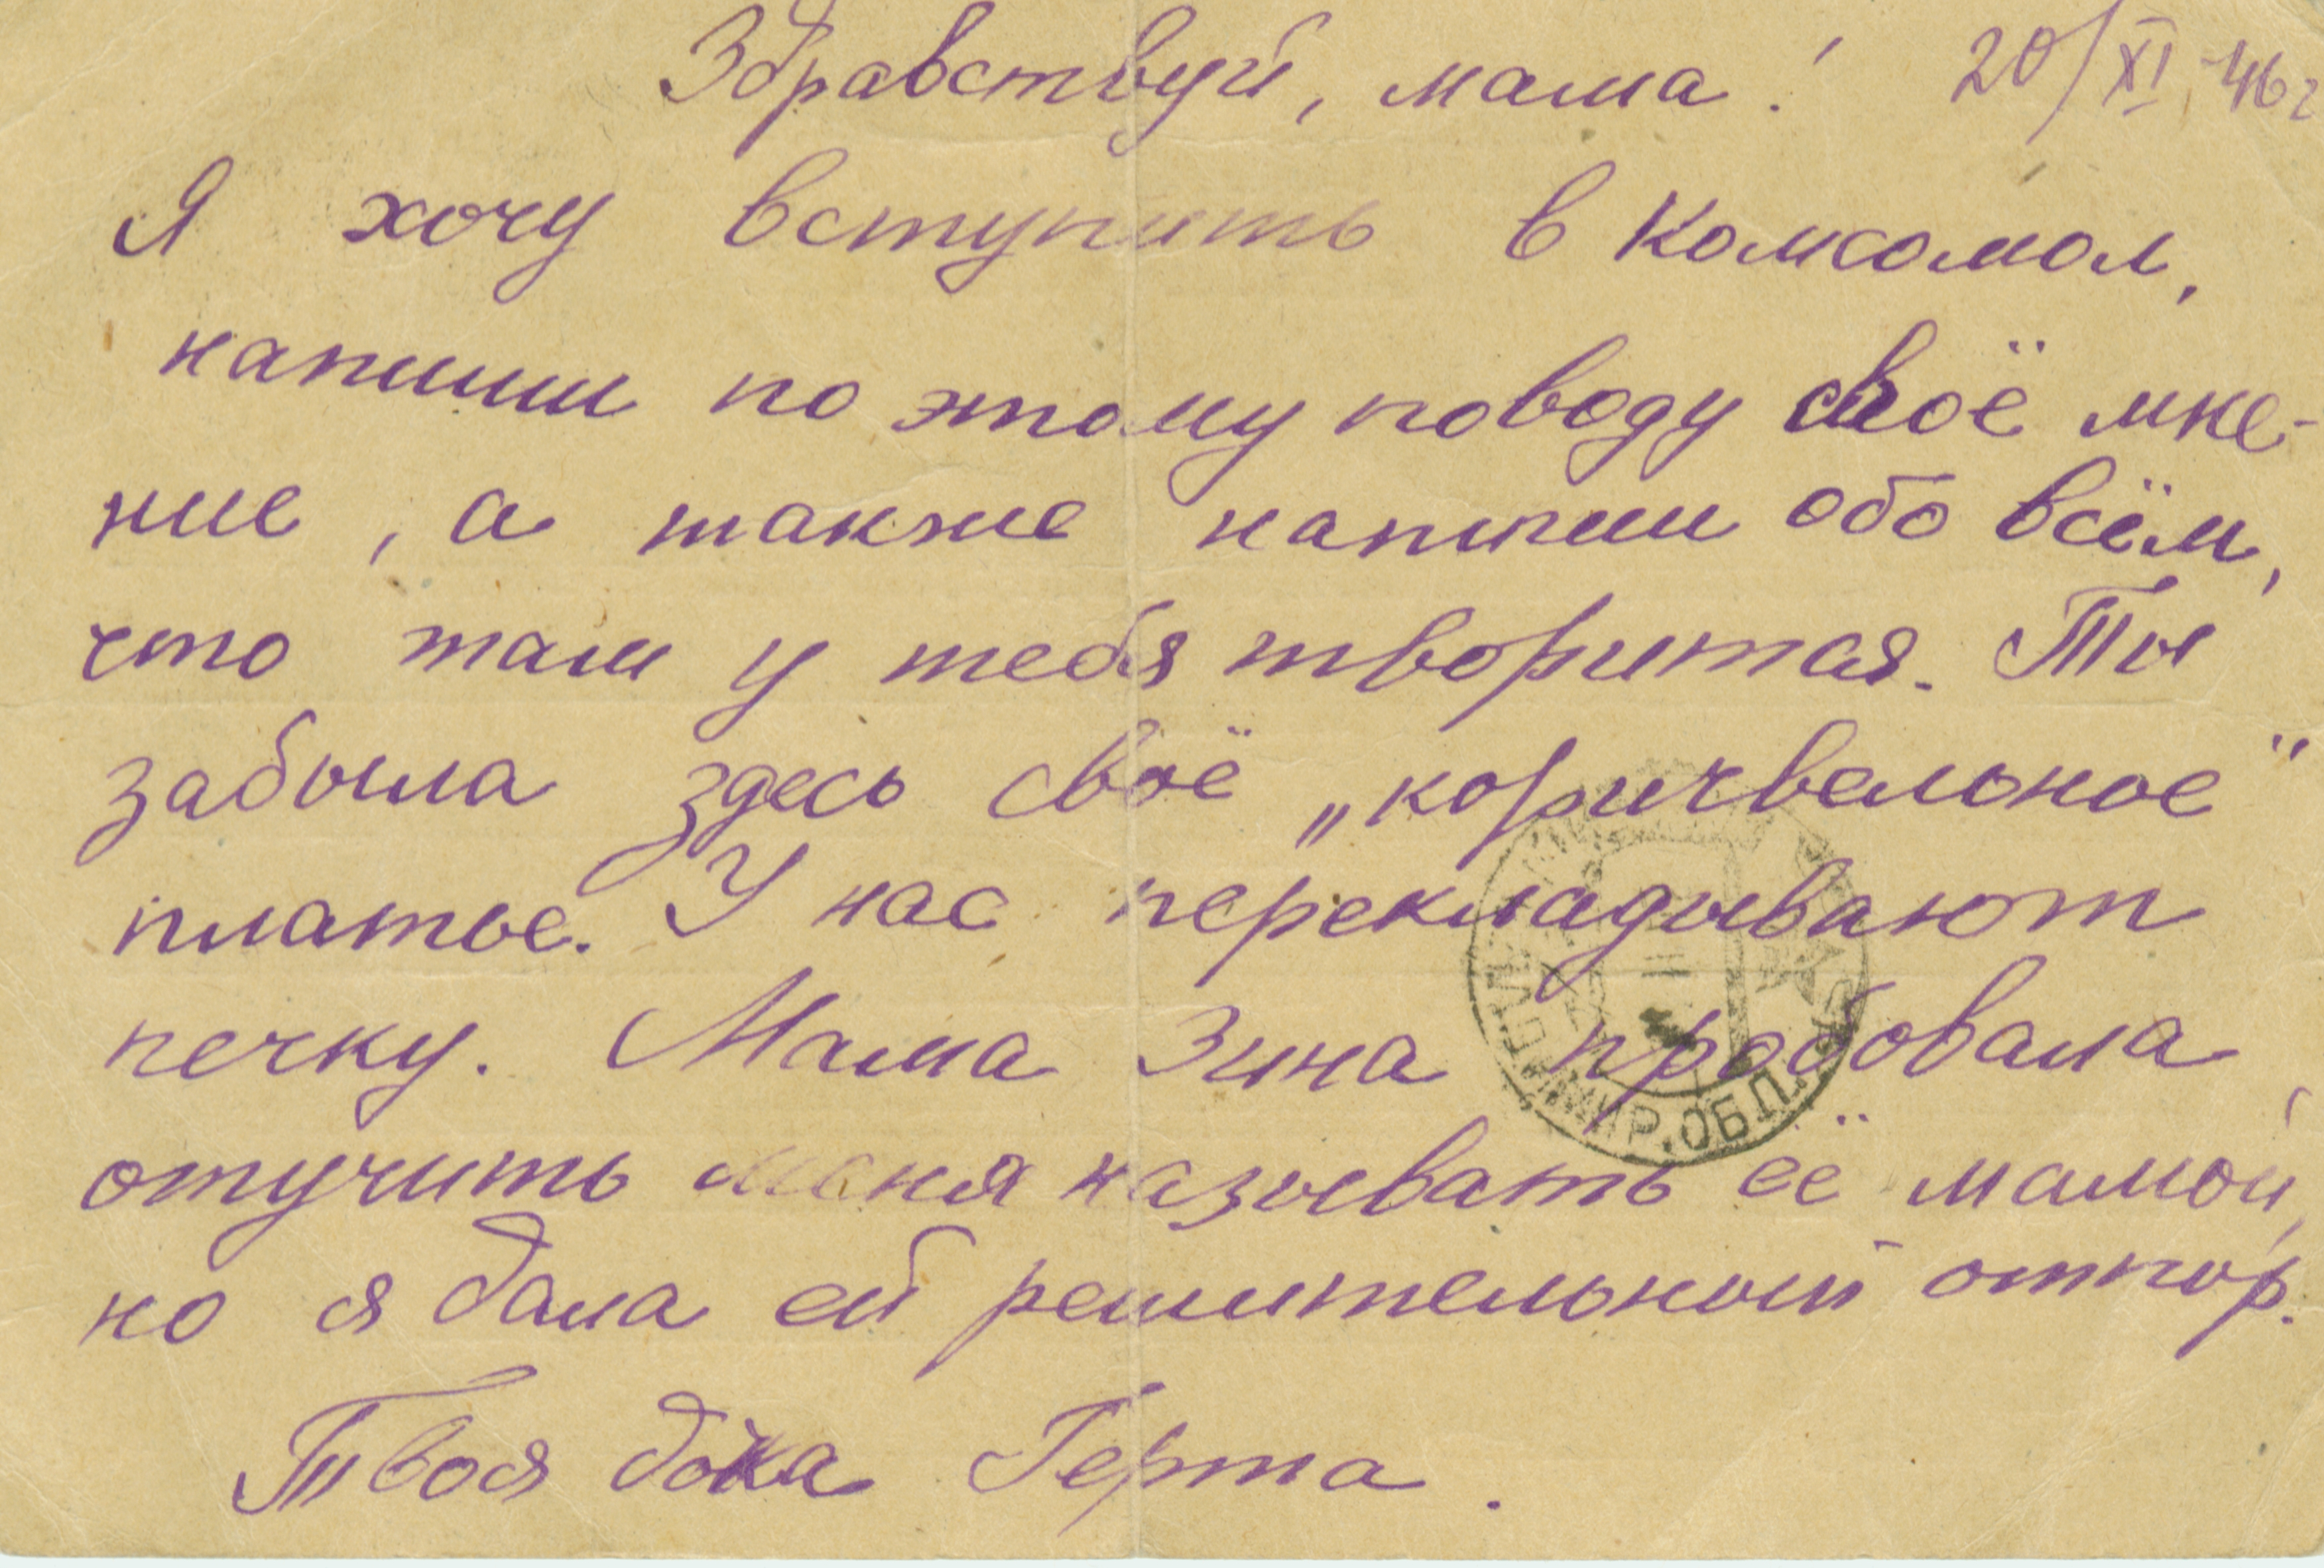 Здравствуй, мама! 20/XI 46 г
Я хочу вступить в Комсомол,
напиши по этому поводу своё мне-
ние, а также напиши обо всём,
что там у тебя творится. Ты
забыла здесь своё „коричвельное"
платье. У нас перекладывают
печку. Мама Зина пробовала
отучить меня называть её мамой,
но я дала ей решительный отпор.
Твоя дочка Герта.
МИР. ОБЛ.